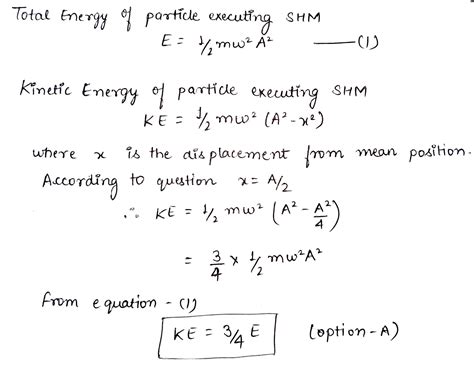 Total Energy of particle executing SHM
E = 1/2 mω² A² ——(1)
Kinetic Energy of particle executing SHM
KE = 1/2 mω² (A² - x²)
where x is the displacement from mean position.
According to question x = A/2
∴ KE = 1/2 mω² (A² - A²/4)
= 3/4 × 1/2 mω²A²
from equation - (1)
KE = 3/4 E (option-A)